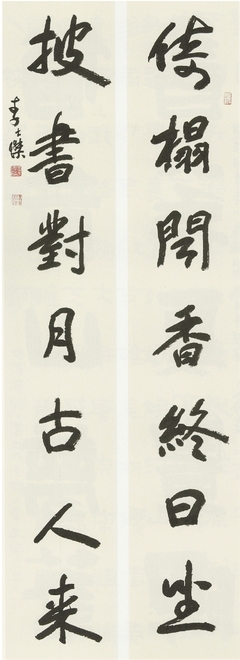 倚榻聞香終日坐
披書對月古人来
士傑